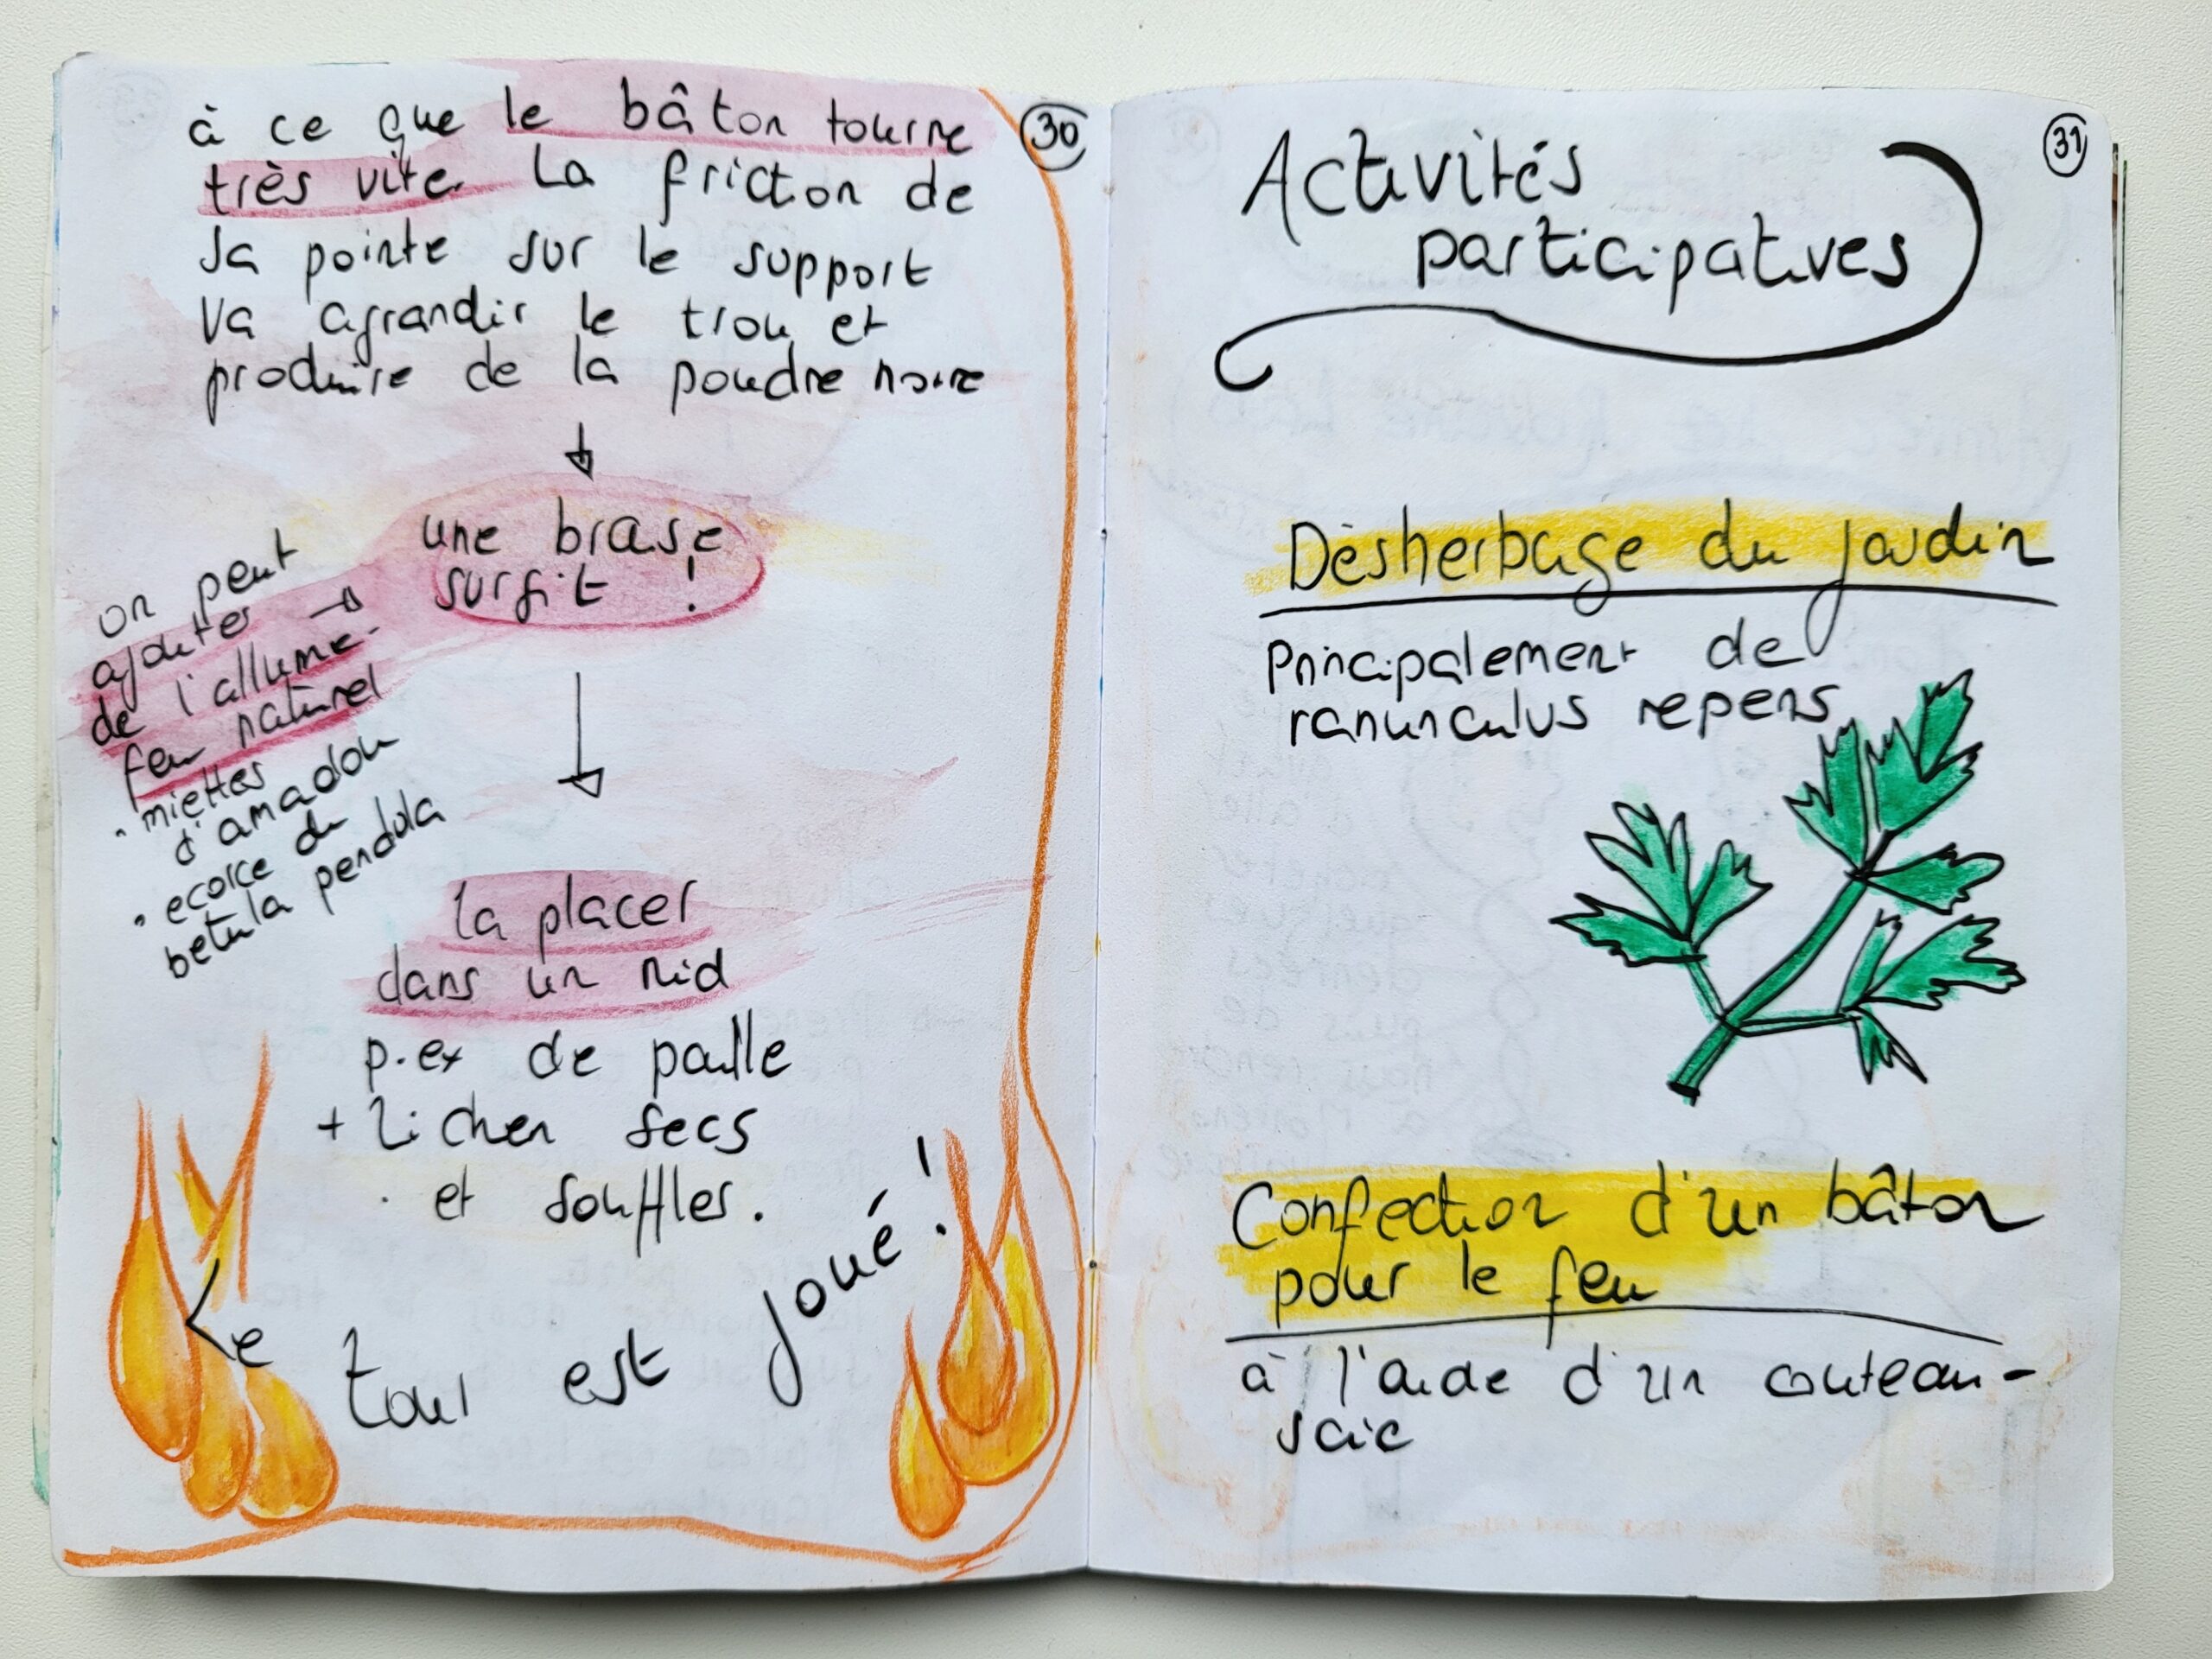 30
à ce que le bâton tourne
très vite. La friction de
sa pointe sur le support
va agrandir le trou et
produire de la poudre noire
une braise
surgit !
on peut
ajouter
de l'allume-
feu naturel
• miettes
d'amadou
• ecorce de
betula pendula
la placer
dans un nid
p.ex de paille
+ Lichen secs
et souffles.
Le tour est joué !
31
Activités
participatives
Désherbage du jardin
Principalement de
ranunculus repens
Confection d'un bâton
pour le feu
à l'aide d'un couteau-
scie